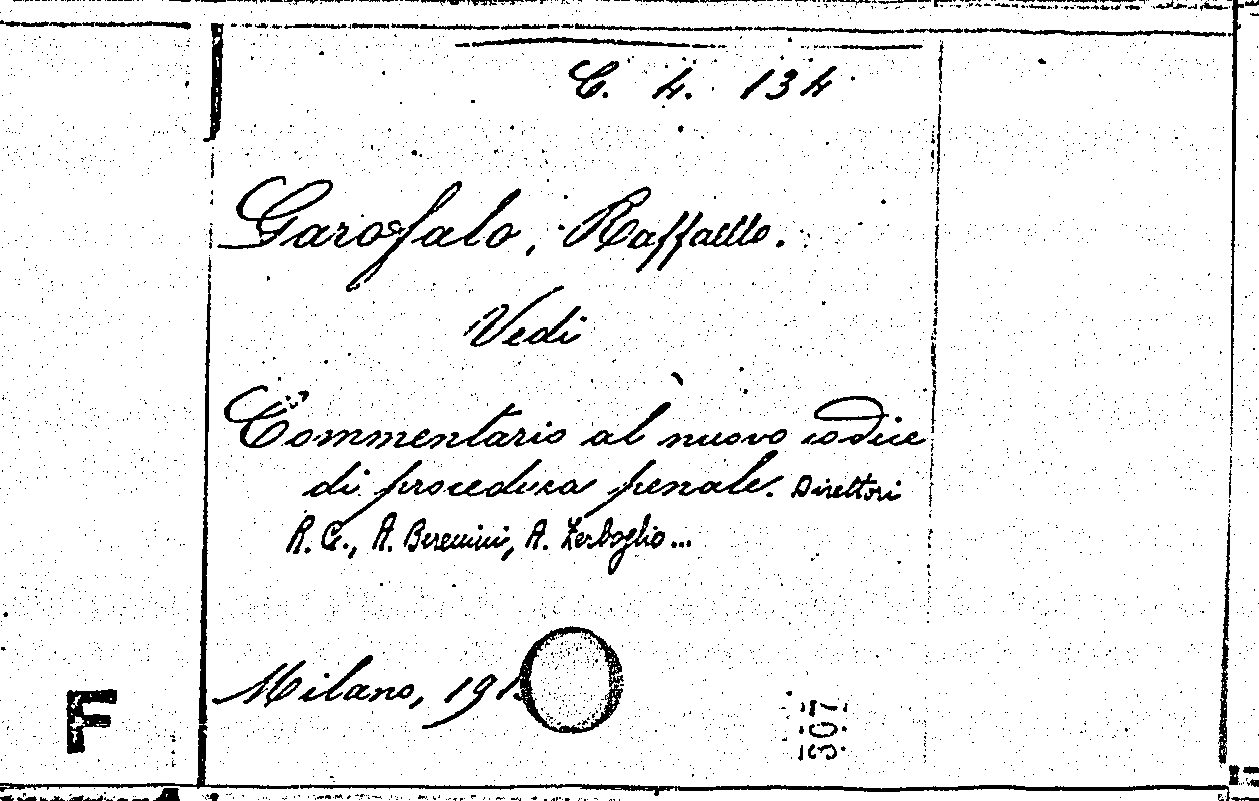 C. 4. 134
Garofalo, Raffaello.
Vedi
Commentario al nuovo codice
di procedura penale. Direttori
R. G., A. Berenini, A. Zerboglio...
Milano, 191
F
307